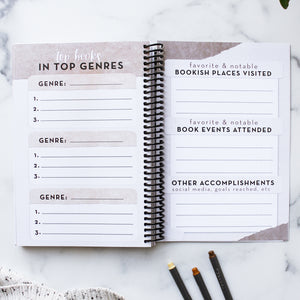 top books
IN TOP GENRES
GENRE:
1.
2.
3.
GENRE:
1.
2.
3.
GENRE:
1.
2.
3.
favorite & notable
BOOKISH PLACES VISITED
favorite & notable
BOOK EVENTS ATTENDED
OTHER ACCOMPLISHMENTS
social media, goals reached, etc